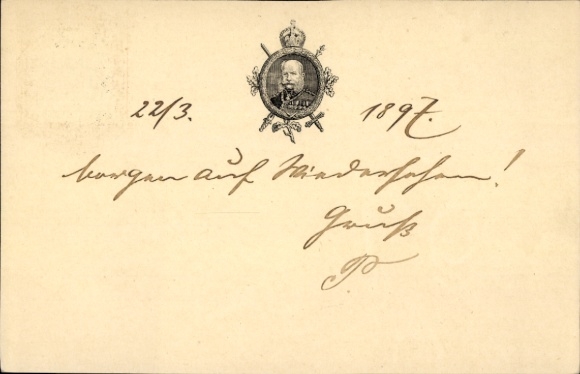 22/3. 1897.
Morgen auf Wiedersehen!
Gruß
P